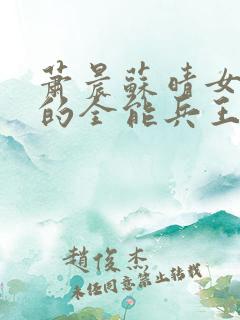 蕭晨蘇晴女
的全能兵王
趙俊杰
未經同意禁止轉載